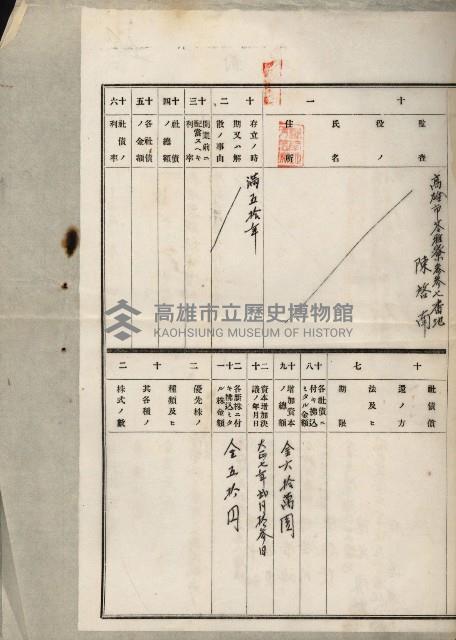 十一
監査役ノ氏名住所
高雄市苓雅寮参参七番地
陳啓南
十二
存立ノ時期又ハ解散ノ事由
滿五拾年
十三
開業前ニ配當スヘキ利率
十四
社債ノ總額
十五
各社債ノ金額
十六
社債ノ利率
十七
社債償還ノ方法及ヒ期限
十八
各社債ニ付キ拂込ミタル金額
十九
增加資本ノ總額
金六拾萬圓
二十
資本增加決議ノ年月日
大正七年弍月拾參日
二十一
各新株ニ付キ拂込ミタル株金額
金五拾円
二十二
優先株ノ種類及ヒ其各種ノ株式ノ數
高雄市立歷史博物館
KAOHSIUNG MUSEUM OF HISTORY